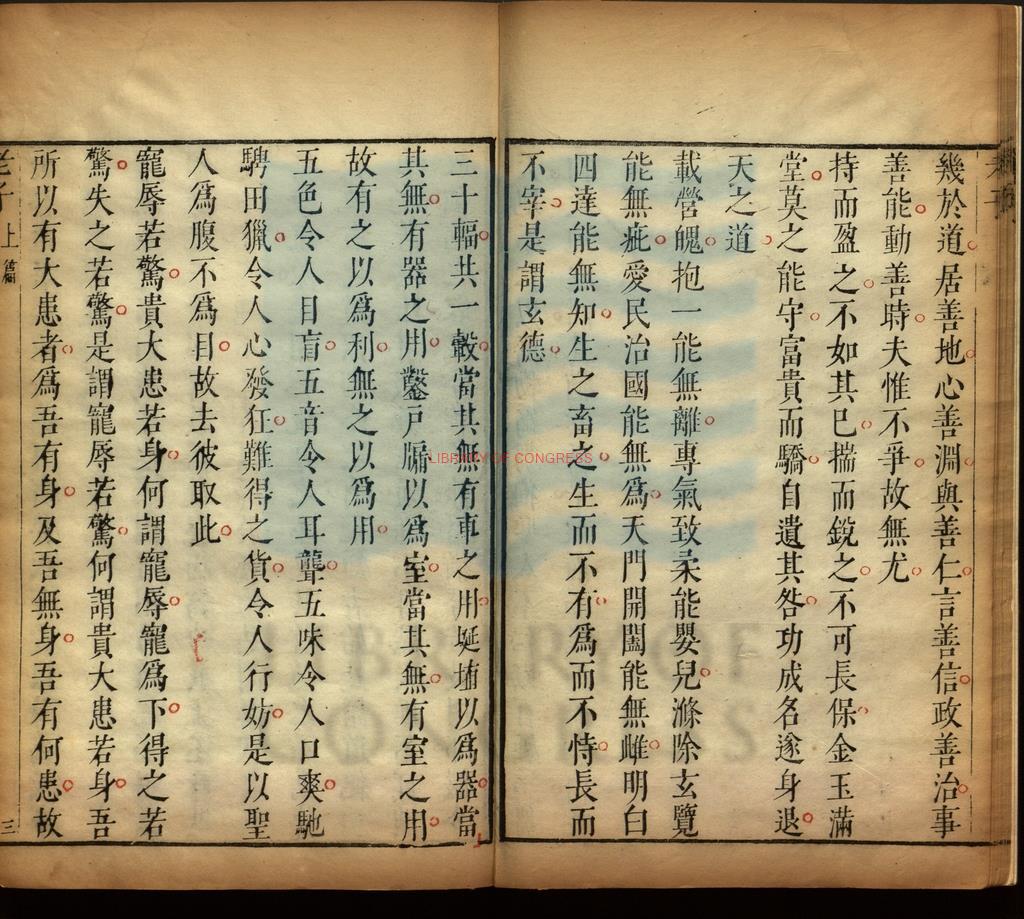 幾於道居善地心善淵與善仁言善信政善治事
善能動善時夫惟不爭故無尤
持而盈之不如其已揣而銳之不可長保金玉滿
堂莫之能守富貴而驕自遺其咎功成名遂身退
天之道
載營魄抱一能無離專氣致柔能嬰兒滌除玄覽
能無疵愛民治國能無為天門開闔能無雌明白
四達能無知生之畜之生而不有為而不恃長而
不宰是謂玄德
三十輻共一轂當其無有車之用埏埴以為器當
其無有器之用鑿戶牖以為室當其無有室之用
故有之以為利無之以為用
五色令人目盲五音令人耳聾五味令人口爽馳
騁田獵令人心發狂難得之貨令人行妨是以聖
人為腹不為目故去彼取此
寵辱若驚貴大患若身何謂寵辱寵為下得之若
驚失之若驚是謂寵辱若驚何謂貴大患若身吾
所以有大患者為吾有身及吾無身吾有何患故
老子 上篇 三
LIBRARY OF CONGRESS